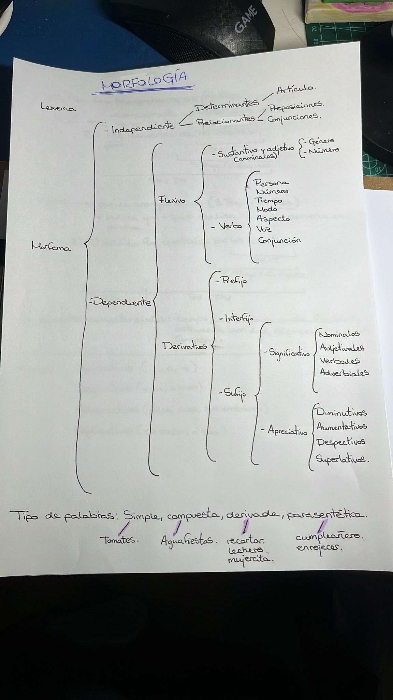 GAME
MORFOLOGÍA
Lexema
Morfema
- Independiente
Determinantes
Artículo
Relacionantes
Preposiciones.
Conjunciones.
- Dependiente
Flexivo
- Sustantivo y adjetivo
(nominales)
- Género
- Número
- Verbo
Persona
Número
Tiempo
Modo
Aspecto
Voz
Conjunción
Derivativos
- Prefijo
- Interfijo
- Sufijo
- Significativo
Nominales
Adjetivales
Verbales
Adverbiales
- Apreciativo
Diminutivos
Aumentativos
Despectivos
Superlativos.
Tipo de palabras: Simple, compuesta, derivada, parasintética.
Tomates.
Aguafiestas.
recortar
lechero
mujercita.
cumpleañero.
enrojecer.